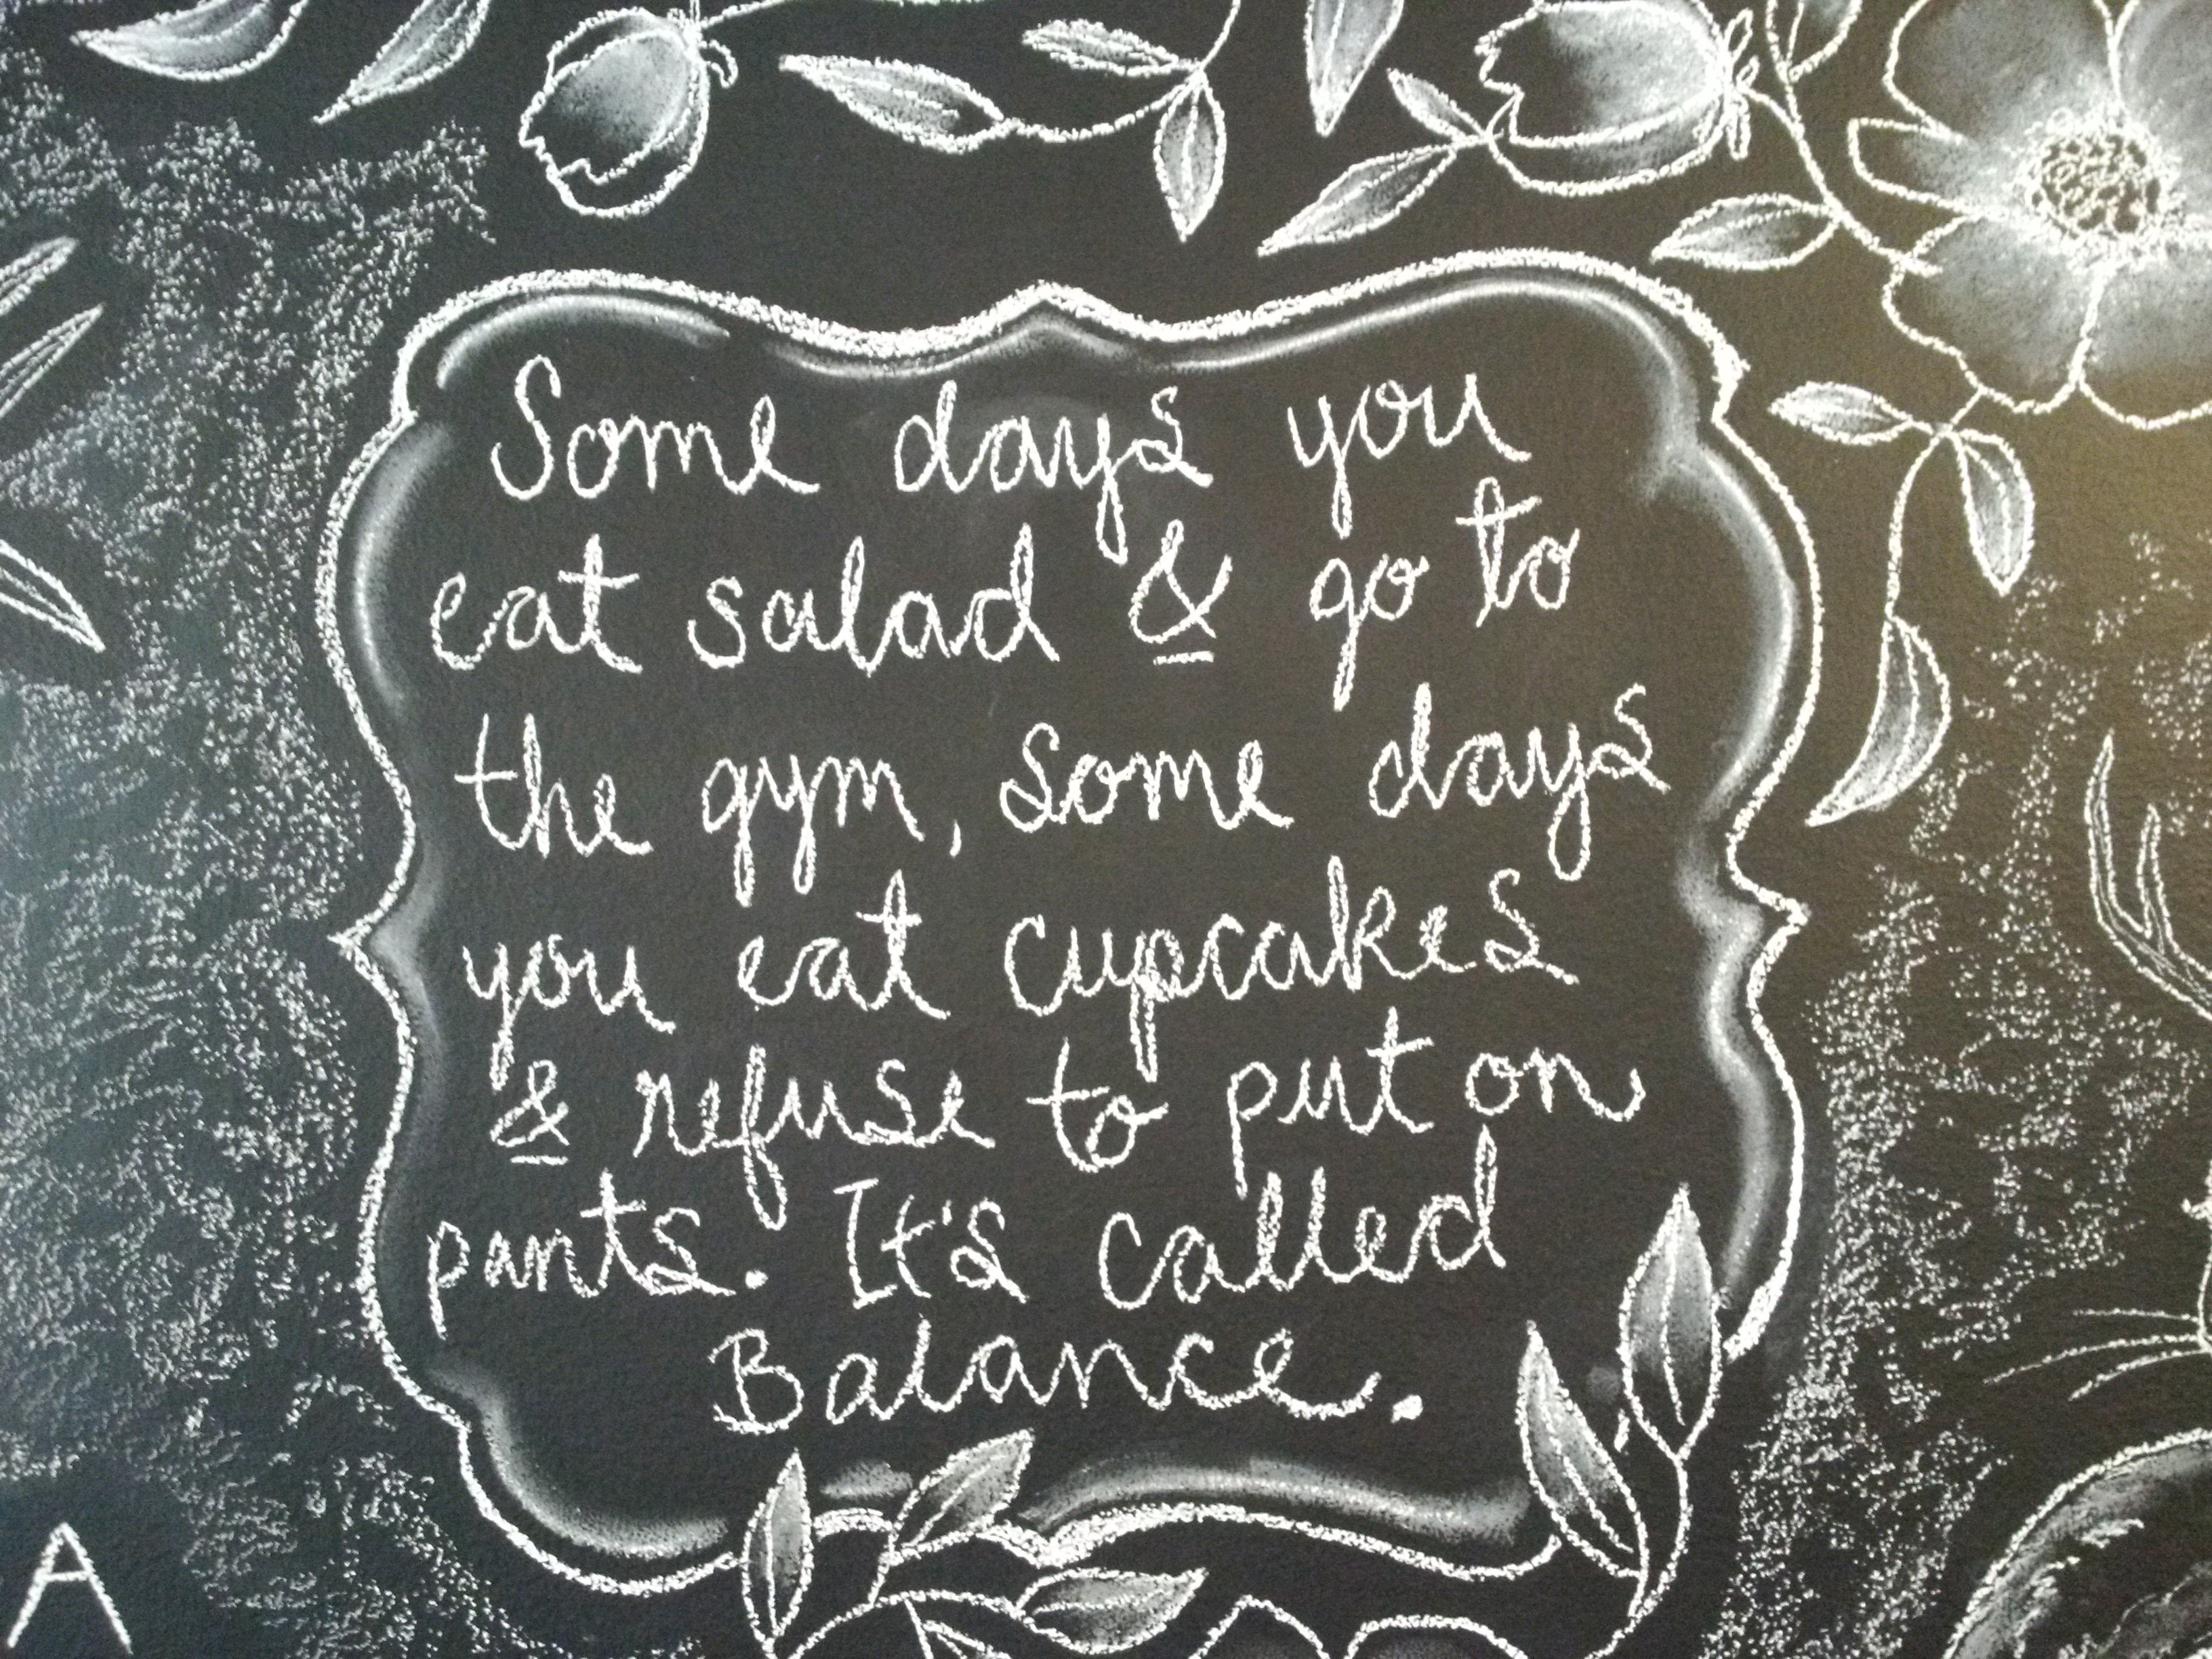 Some days you
eat salad & go to
the gym, Some days
you eat cupcakes
& refuse to put on
pants. It's called
Balance.
A